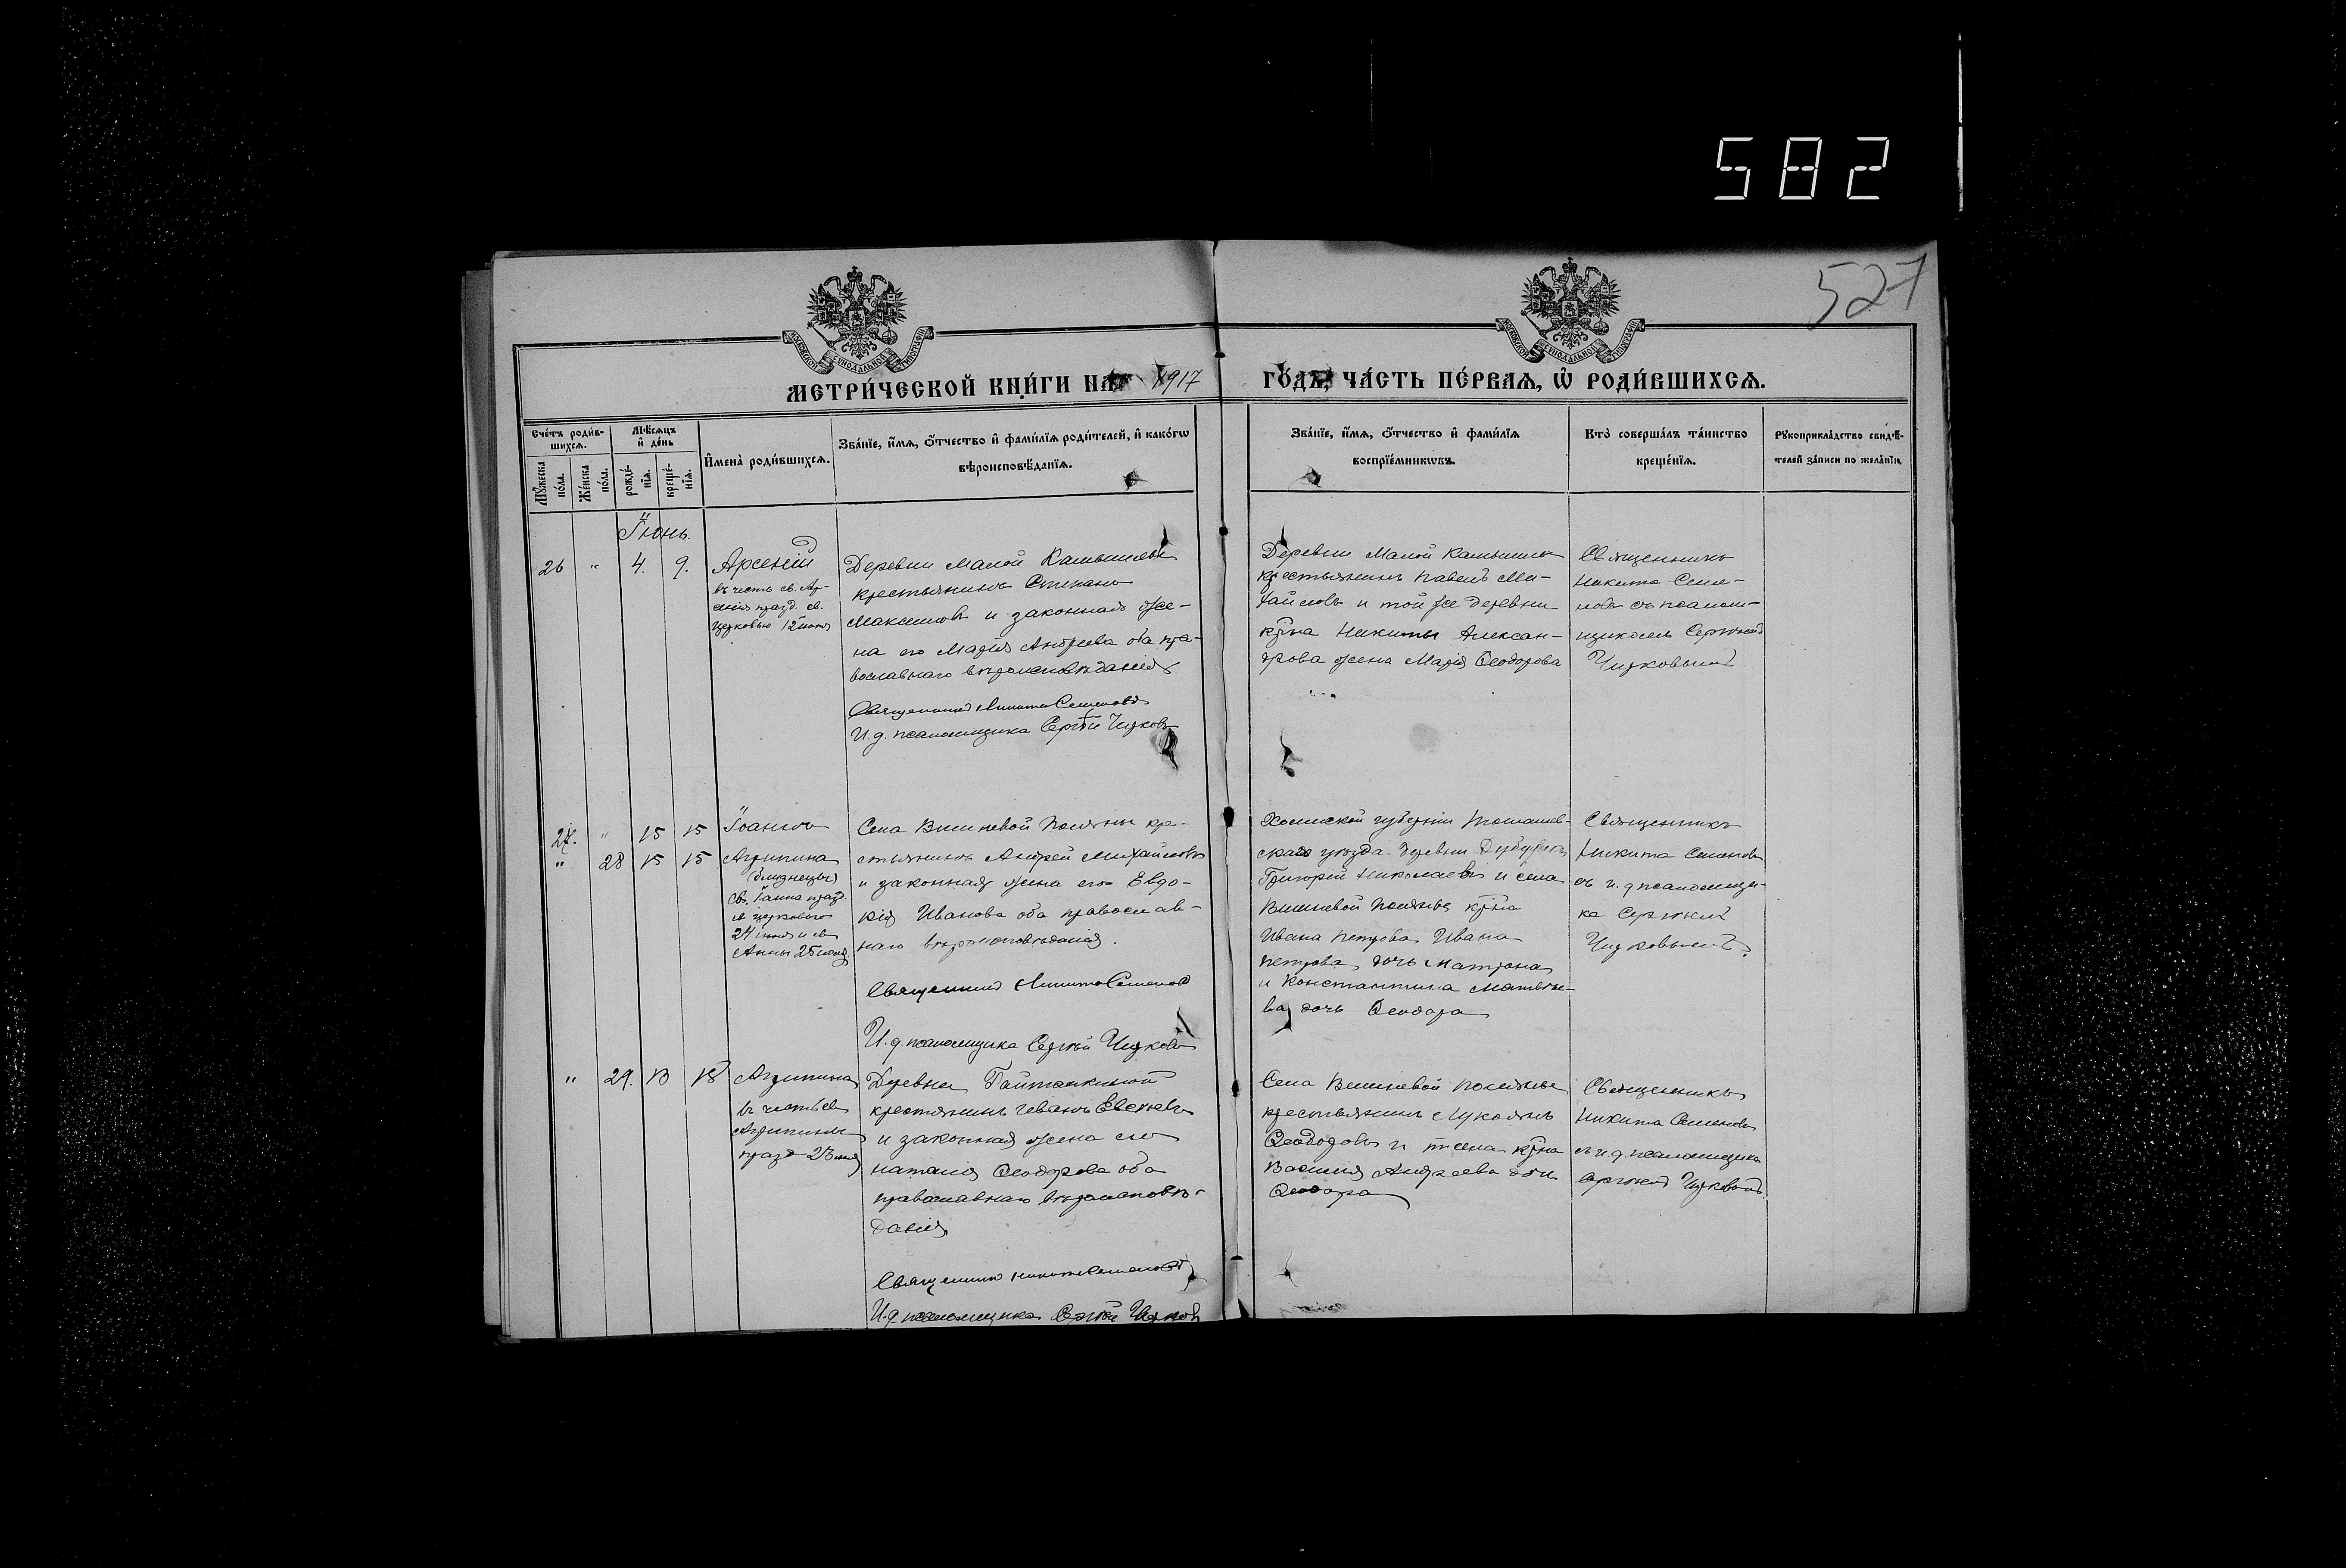 582
527
МОСКОВСКОЙ СѴНОДАЛЬНОЙ ТИПОГРАФІИ
МОСКОВСКОЙ СѴНОДАЛЬНОЙ ТИПОГРАФІИ
МЕТРИ́ЧЕСКОЙ КНИ́ГИ НА 1917
ГОДЪ, ЧА́СТЬ ПЕ́РВАѦ, Ѽ РОДИ́ВШИХСѦ.
Сче́тъ роди́в-
шихсѧ.
Мꙋ́жеска
по́ла.
Же́нска
по́ла.
Мѣ́сѧцъ
и҆ де́нь
рожде́-
нїѧ.
креще́-
нїѧ.
И҆мена̀ роди́вшихсѧ.
Зва́нїе, и҆́мѧ, ѻ҆́тчество и҆ фами́лїѧ роди́телей, и҆ како́гѡ
вѣроисповѣ́данїѧ.
Зва́нїе, и҆́мѧ, ѻ҆́тчество и҆ фами́лїѧ
воспрїе́мникѡвъ.
Кто̀ соверша́лъ та́инство
креще́нїѧ.
Рꙋкоприкла́дство свидѣ́-
телей за́писи по жела́нїю.
Іюнь.
26 " 4. 9.
Арсеній
въ честь св. Ар-
сенія празд. св.
церковью 12 іюня
Деревни Малой Камышевки
крестьянинъ Степанъ
Максимовъ и законная же-
на его Марія Андреева оба пра-
вославнаго вѣроисповѣданія
Священникъ Никита Семеновъ
И. д. псаломщика Сергѣй Чирковъ
Деревни Малой Камышевки
крестьянинъ Павелъ Ми-
хайловъ и той же деревни
кр-на Никиты Алексан-
дрова жена Марія Ѳеодорова
Священникъ
Никита Семе-
новъ съ псалом-
щикомъ Сергѣемъ
Чирковымъ
27. " 15 15
Іоаннъ
" 28 15 15
Агрипина
(близнецы)
св. Іоанна празд.
св церковью
24 іюня и св
Анны 25 іюня
Села Вишневой Поляны кре-
стьянинъ Андрей Михайловъ
и законная жена его Евдо-
кія Иванова оба православ-
наго вѣроисповѣданія.
Священникъ Никита Семеновъ
И. д. псаломщика Сергѣй Чирковъ
Холмской губерніи Томашев-
скаго уѣзда деревни
Григорій Николаевъ и села
Вишневой Поляны кр-на
Ивана Петрова Ивана
Петрова дочь Матрона
и Константина Матвѣе-
ва дочь Ѳеодора
Священникъ
Никита Семеновъ
съ и. д псаломщи-
ка Сергѣемъ
Чирковымъ.
" 29. 13 18
Агрипина
въ честь св
Агрипины
празд 23 іюня
Деревни
крестьянинъ Иванъ
и законная жена его
Наталія Ѳеодорова оба
православнаго вѣроисповѣ-
данія
Священникъ Никита Семеновъ
И. д. псаломщика Сергѣй Чирковъ
Села Вишневой Поляны
крестьянинъ Лукіанъ
Ѳеодоровъ и т. села кр-на
Василія Андреева дочь
Ѳеодора
Священникъ
Никита Семеновъ
съ и. д. псаломщика
Сергѣемъ Чирковымъ